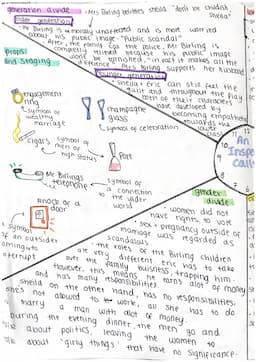 generation divide
Mrs Birling tells Sheila "don't be childish Sheila"
older generation
Mr Birling is morally unaffected and is more worried about his public image - "Public scandal"
After the family call the police, Mr Birling is completely relieved because his public image wont be tarnished, "in fact it makes all the difference". Mrs Birling supports her husband
props and staging
younger generation
Sheila + Eric can still feel the guilt and throughout the rest of their characters have developed by becoming empathetic towards the lower class
engagement ring
symbol of wealthy marriage
champagne glass
symbol of celebration
cigars
symbol of men of high status
Port
Mr Birlings telephone
symbol of a connection the wider world
knock of a door
symbol of an outsider coming to interrupt
12
11
10
9
An
Inspe
Calls
gender divide
women did not have rights, to vote
sex + pregnancy outside of marriage was regarded as scandalous
the roles of the Birling children are very different. Eric has to take over the family business, trapping him.
However, this means he earns alot of money and has many responsibilities.
Sheila on the other hand, has no responsibilities, she's not allowed to work, all she has to do is marry a man with alot of money.
During the evening dinner, the men go and talk about politics, leaving the women to talk about 'girly things' that have no significance.